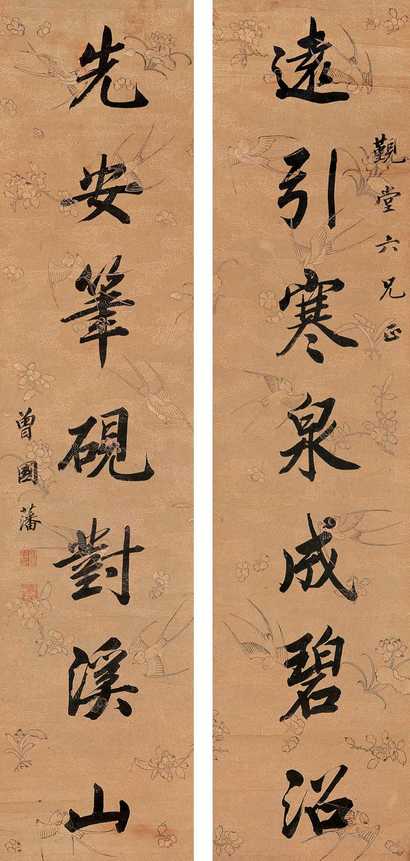 覲堂六兄正
遠引寒泉成碧沼
先安筆硯對溪山
曾國藩